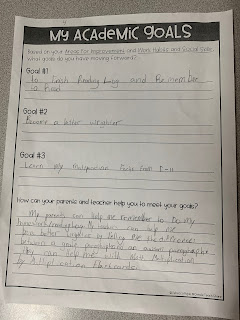 4
MY ACADEMIC GOALS
Based on your Areas for Improvement and Work Habits and Social Skills,
what goals do you have moving forward?
Goal #1
to finish Reading Log and Remember
to Read
Goal #2
Become a better
Goal #3
Learn my Multiplication Facts from 1-11
How can your parents and teacher help you to meet your goals?
My parents can help me remember to Do my
homework My teachers can help me
be a better by telling me the difference
between a good paragraph and an awesome paragraph
They can help me with my Multiplication
by Multiplication Flashcards